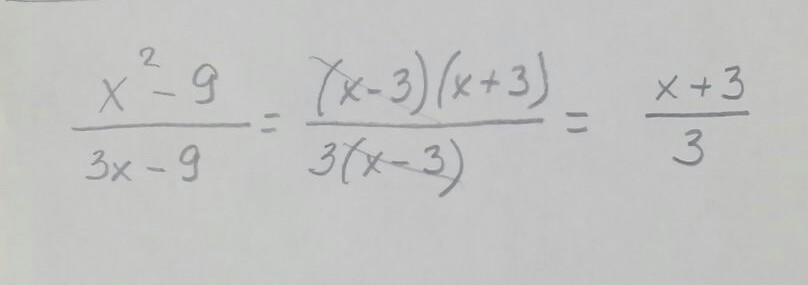 x² - 9 / 3x - 9 = (x - 3)(x + 3) / 3(x - 3) = x + 3 / 3